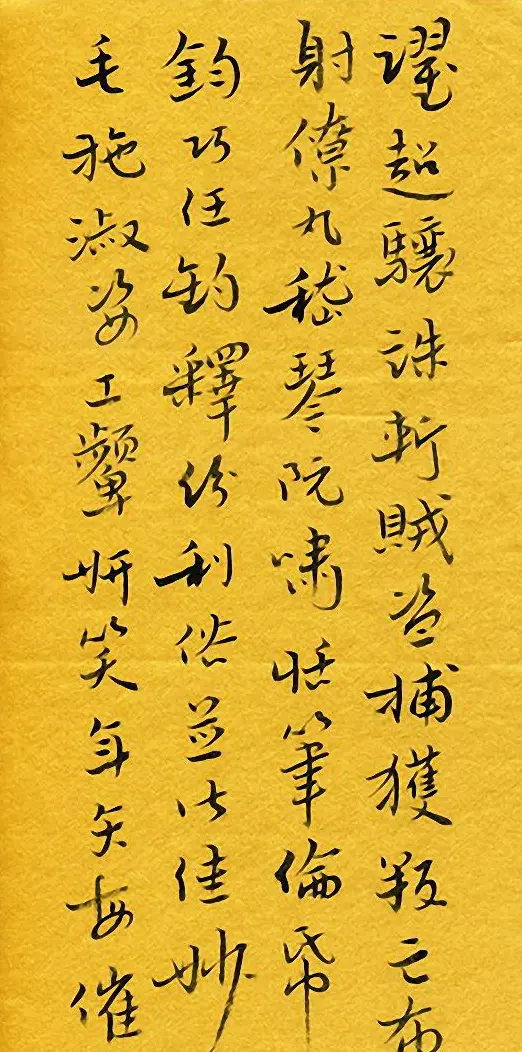 躍超驤誅斬賊盜捕獲叛亡布
射僚丸嵇琴阮嘯恬筆倫帋
鈞巧任釣釋紛利俗並皆佳妙
毛施淑姿工顰妍笑年矢每催